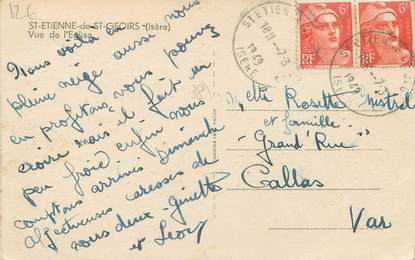 12€
ST-ETIENNE-de-ST-GEOIRS -(Isèra)
Vue de l'Eglise
Nous voilà en
pleine neige aussi nous
en profitons vous pouvez
croire mais il fait un
peu froid enfin nous
comptons arriver Dimanche
affectueuses caresses de
nous deux - Ginette
et Léon
6F
6F
RF
RF
ST ETIENNE
18H -7-3
1949
ISERE
1949
Melle Rosette Mistral
et famille
"Grand'Rue"
Callas
Var